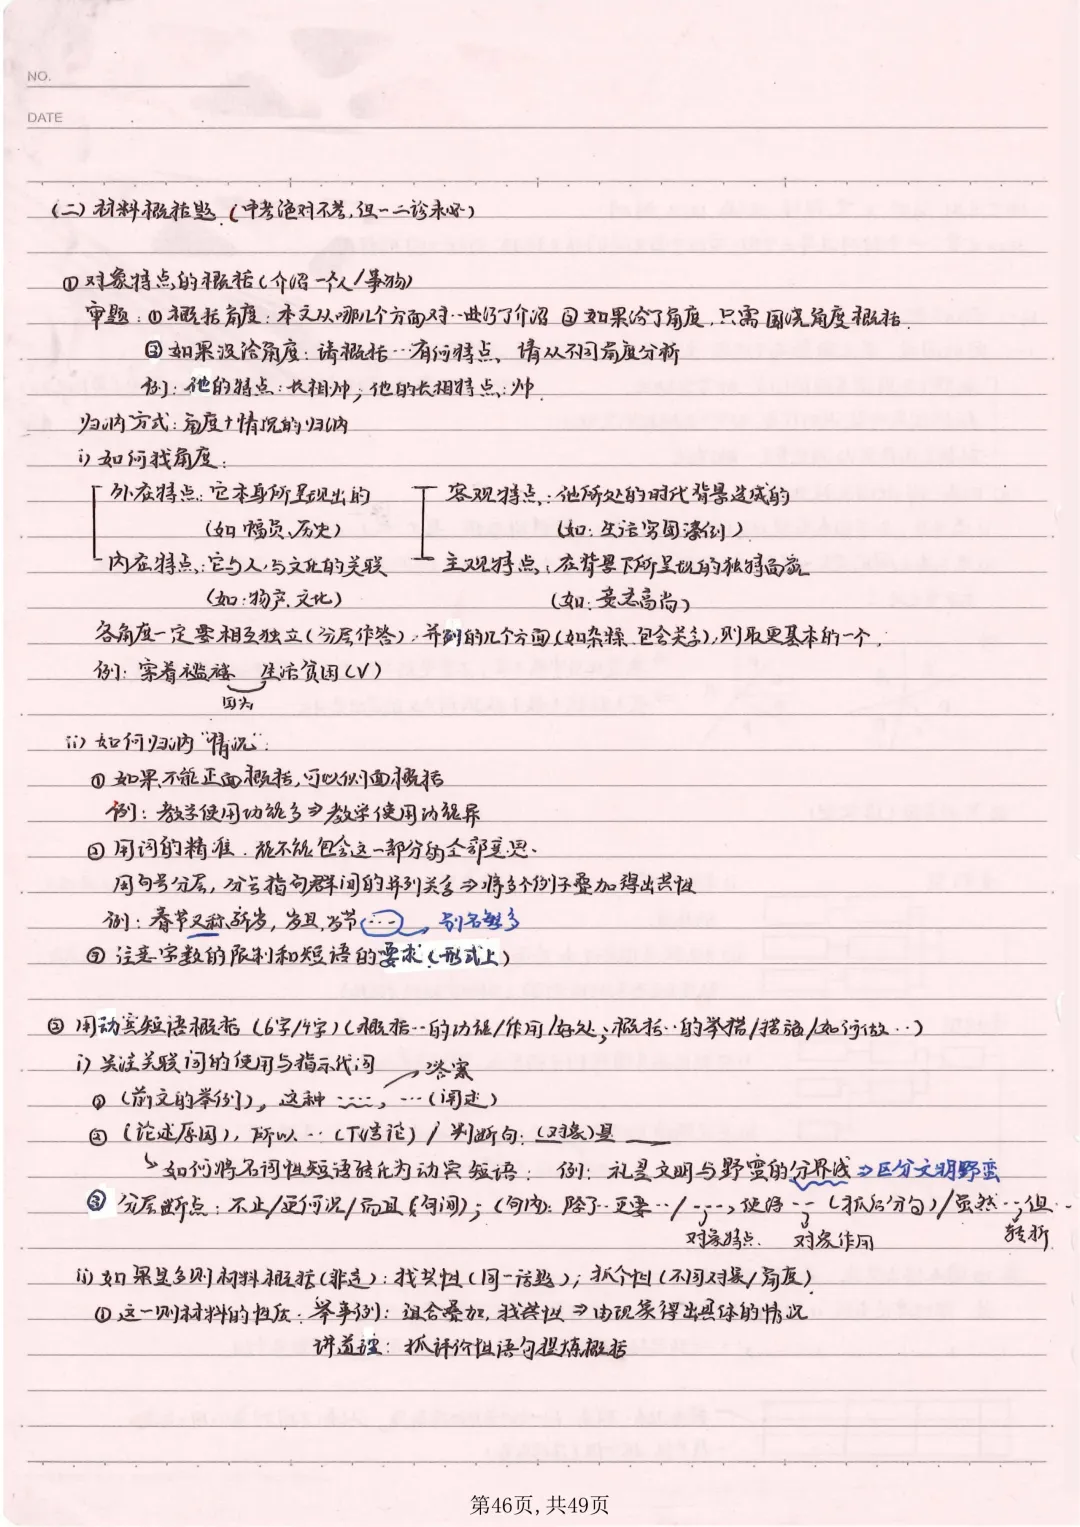 NO.
DATE
(二) 材料概括题 (中考绝对不考,但一二诊未必)
① 对象特点的概括(介绍一个人/事物)
审题:① 概括角度:本文从哪几个方面对…进行了介绍 ② 如果给了角度,只需围绕角度概括.
③ 如果没给角度:请概括…有何特点、请从不同角度分析
例:他的特点:长相帅;他的长相特点:帅.
归纳方式:角度+情况的归纳
i) 如何找角度:
外在特点:它本身所呈现出的 客观特点:他所处的时代背景造成的
(如 幅员、历史) (如:生活穷困潦倒)
内在特点:它与人,与文化的关联 主观特点:在背景下所呈现的独特面貌
(如:物产.文化) (如:意志高尚)
各角度一定要相互独立(分层作答),并列的几个方面(如杂糅、包含关系),则取更基本的一个.
例:穿着褴褛 生活贫困(√)
因为
ii) 如何归纳“情况”:
① 如果不能正面概括,可以侧面概括
例:教学使用功能多⇒教学使用功能异
② 用词的精准.能不能包含这一部分的全部意思.
用句号分层,分号指句群间的并列关系⇒将多个例子叠加得出共性
例:春节又称新岁,岁旦,岁节…… 别名繁多
③ 注意字数的限制和短语的要求(形式上)
② 用动宾短语概括(6字/4字)(概括…的功能/作用/好处;概括…的举措/措施/如何做…)
i) 关注关联词的使用与指示代词
答案
① (前文的举例),这种……,…(阐述)
② (论述原因),所以…(下结论)/判断句:(对象)是
如何将名词性短语转化为动宾短语: 例:礼是文明与野蛮的分界线⇒区分文明野蛮
③ 分层断点:不止/更何况/而且(句间);(句内:除了…更要…/……,使得…(抓后分句)/虽然…,但…
对象特点. 对象作用 转折
ii) 如果是多则材料概括(非连):找共性(同一话题);抓个性(不同对象/角度)
① 这一则材料的性质:举事例:组合叠加,找共性⇒由现象得出具体的情况
讲道理:抓评价性语句提炼概括
第46页,共49页